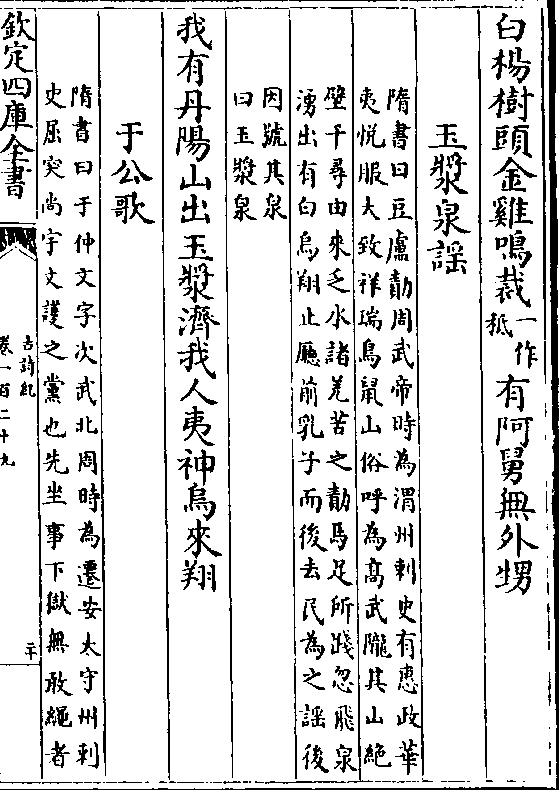 白楊樹頭金雞鳴裁一作秪有阿舅無外甥
玉漿泉謡
隋書曰豆盧勣周武帝時為渭州刺史有惠政華
夷悅服大致祥瑞鳥鼠山俗呼為高武隴其山絶
壁千尋由來乏水諸羌苦之勣馬足所踐忽飛泉
湧出有白烏翔止廳前乳子而後去民為之謡後
因號其泉
曰玉漿泉
我有丹陽山出玉漿濟我人夷神烏來翔
于公歌
隋書曰于仲文字次武北周時為遷安太守州刺
史屈突尚宇文護之黨也先坐事下獄無敢繩者
欽定四庫全書
古詩紀
卷一百二十九
二十